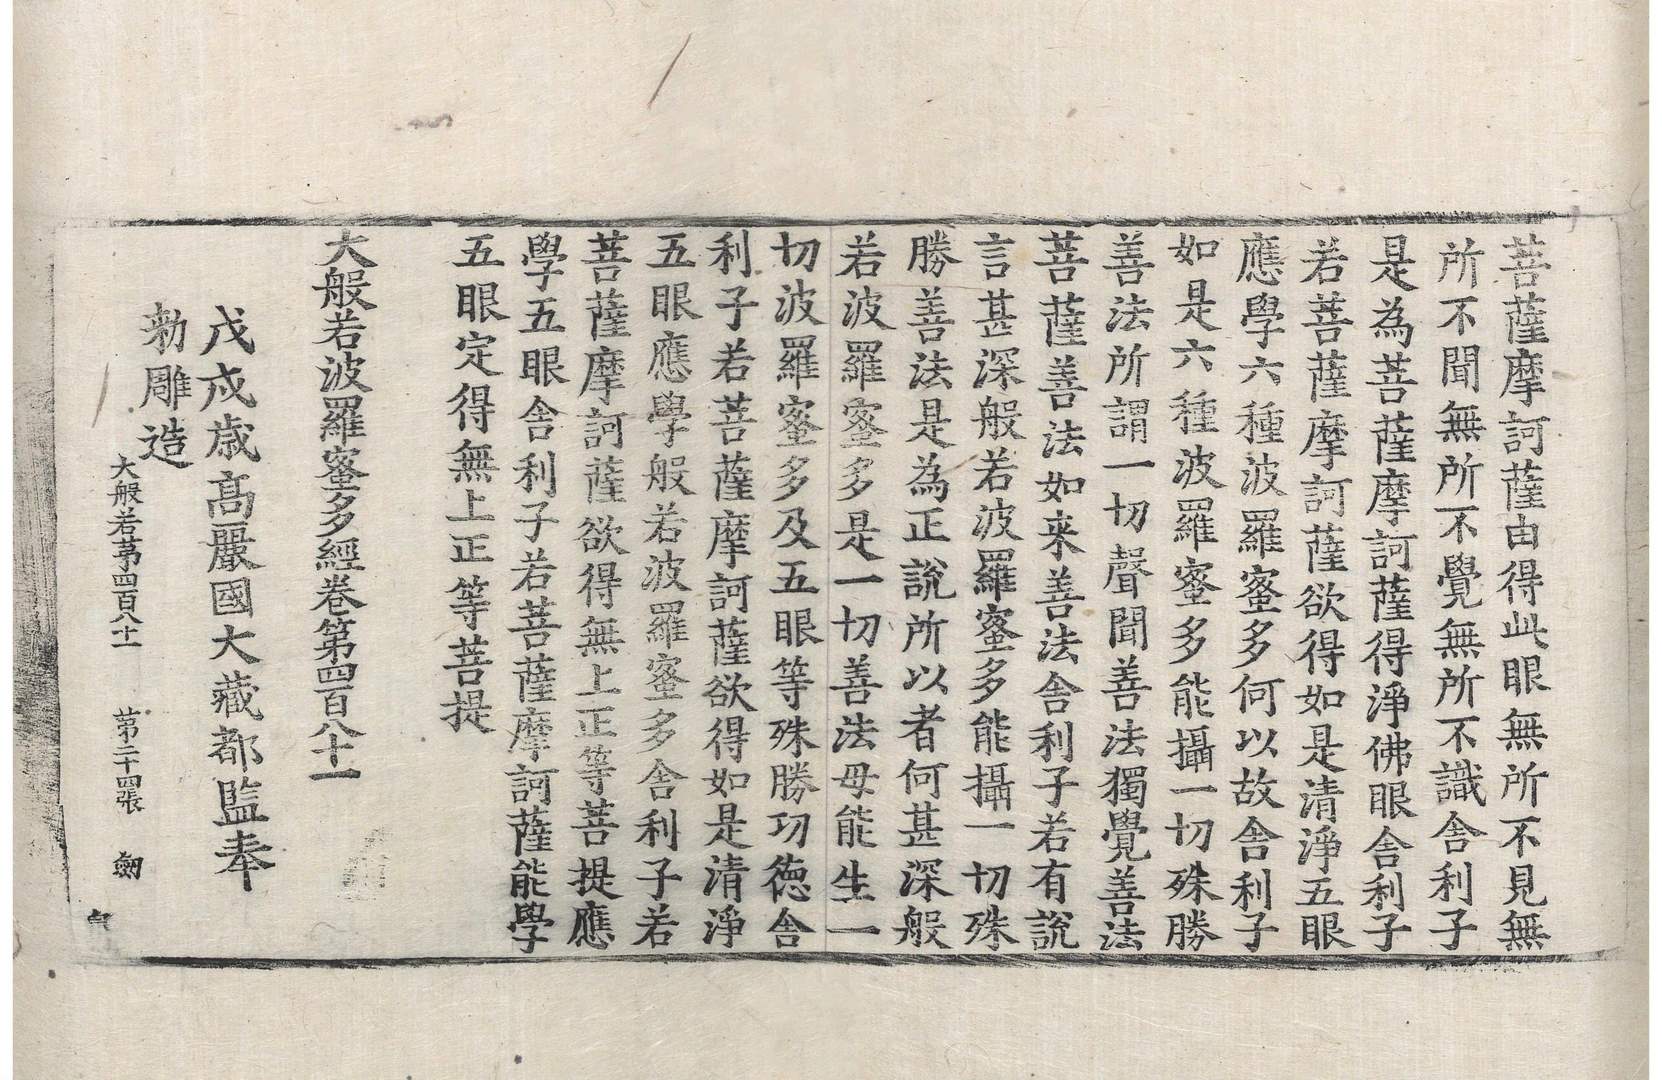 菩薩摩訶薩由得此眼無所不見無
所不聞無所不覺無所不識舍利子
是為菩薩摩訶薩得淨佛眼舍利子
若菩薩摩訶薩欲得如是清淨五眼
應學六種波羅蜜多何以故舍利子
如是六種波羅蜜多能攝一切殊勝
善法所謂一切聲聞善法獨覺善法
菩薩善法如来善法舍利子若有說
言甚深般若波羅蜜多能攝一切殊
勝善法是為正說所以者何甚深般
若波羅蜜多是一切善法母能生一
切波羅蜜多及五眼等殊勝功德舍
利子若菩薩摩訶薩欲得如是清淨
五眼應學般若波羅蜜多舍利子若
菩薩摩訶薩欲得無上正等菩提應
學五眼舍利子若菩薩摩訶薩能學
五眼定得無上正等菩提
大般若波羅蜜多經卷第四百八十一
戊戌歲高麗國大藏都監奉
勅雕造
大般若苐四百八十一 苐二十四張 劒